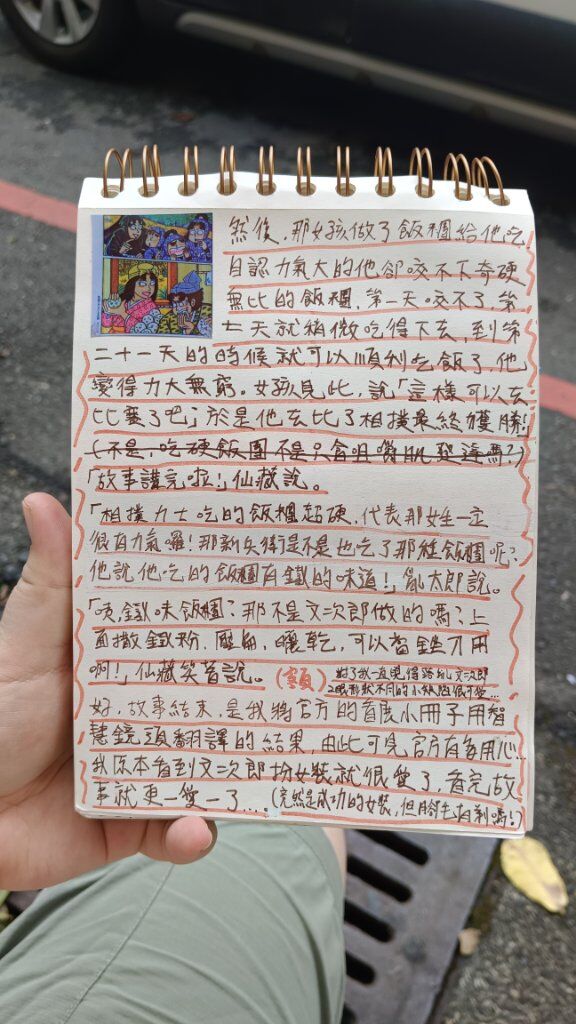 然後,那女孩做了飯糰給他吃
自認力氣大的他卻咬不下奇硬
無比的飯糰,第一天咬不了,第
七天就稍微吃得下去,到第
二十一天的時候就可以順利吃飯了,他
變得力大無窮。女孩見此,說「這樣可以去
比賽了吧」於是他去比了相撲最終獲勝!
(不是,吃硬飯團不是只會咀嚼肌發達嗎?)
「故事講完啦!」仙藏說。
「相撲力士吃的飯糰超硬,代表那女生一定
很有力氣囉!那新兵衛是不是也吃了那種飯糰呢?
他說他吃的飯糰有鐵的味道!」亂太郎說。
「咦,鐵味飯糰?那不是文次郎做的嗎?上
面撒鐵粉、壓扁、曬乾,可以當鍾刀用
啊!」仙藏笑著說。
好,故事結束,是我將官方的首展小冊子用智
慧鏡頭翻譯的結果,由此可見官方有多用心…
我原本看到文次郎扮女裝就很愛了,看完故
事就更一愛一了…(竟然是成功的女裝,但腳毛有剃嗎!)